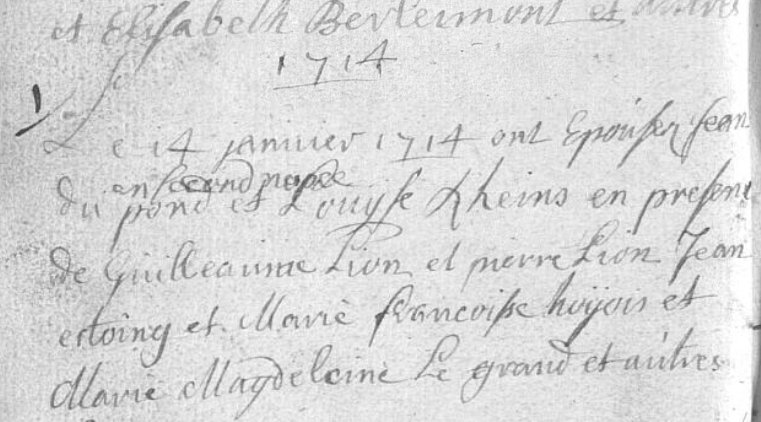 et Elisabeth Berleimont et autres
1714
Le 14 janvier 1714 ont Epouser Jean
en second nopce
du pond et Louyse Rheins en presenc
de Guilleaume Lion et pierre Lion Jean
estoing et Marie francoisse hoÿois et
Marie Magdeleine Le grand et autres